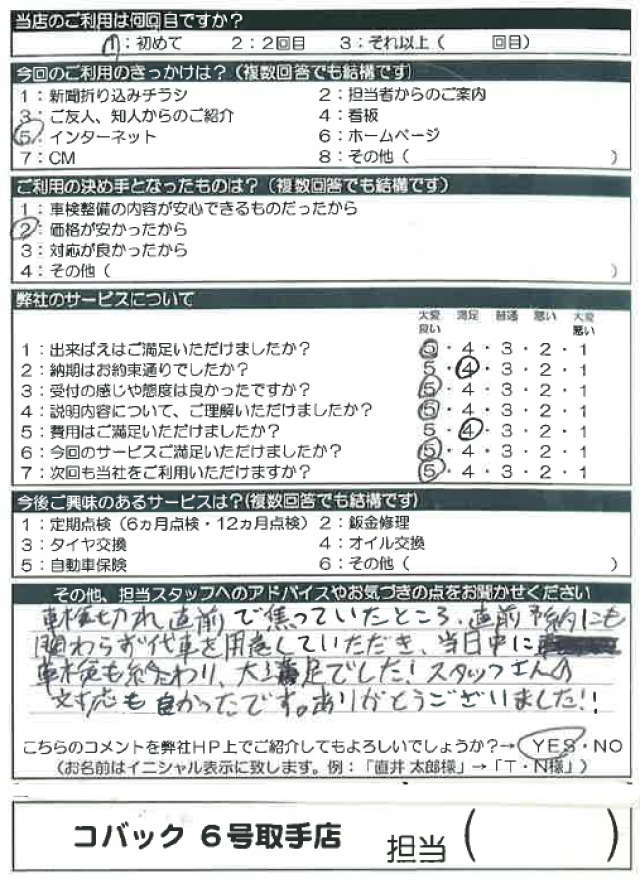 当店のご利用は何回目ですか?
1:初めて 2:2回目 3:それ以上( 回目)
今回のご利用のきっかけは?(複数回答でも結構です)
1:新聞折り込みチラシ 2:担当者からのご案内
3:ご友人、知人からのご紹介 4:看板
5:インターネット 6:ホームページ
7:CM 8:その他( )
ご利用の決め手となったものは?(複数回答でも結構です)
1:車検整備の内容が安心できるものだったから
2:価格が安かったから
3:対応が良かったから
4:その他( )
弊社のサービスについて
大変良い 満足 普通 悪い 大変悪い
1:出来ばえはご満足いただけましたか? 5・4・3・2・1
2:納期はお約束通りでしたか? 5・4・3・2・1
3:受付の感じや態度は良かったですか? 5・4・3・2・1
4:説明内容について、ご理解いただけましたか? 5・4・3・2・1
5:費用はご満足いただけましたか? 5・4・3・2・1
6:今回のサービスご満足いただけましたか? 5・4・3・2・1
7:次回も当社をご利用いただけますか? 5・4・3・2・1
今後ご興味のあるサービスは?(複数回答でも結構です)
1:定期点検(6ヵ月点検・12ヵ月点検) 2:鈑金修理
3:タイヤ交換 4:オイル交換
5:自動車保険 6:その他( )
その他、担当スタッフへのアドバイスやお気づきの点をお聞かせください
車検切れ直前で焦っていたところ、直前予約にも
関わらず代車を用意していただき、当日中に
車検も終わり、大満足でした!スタッフさんの
対応も良かったです。ありがとうございました!!
こちらのコメントを弊社HP上でご紹介してもよろしいでしょうか?→ YES・NO
(お名前はイニシャル表示に致します。例:「直井 太郎様」→「T・N様」)
コバック 6号取手店 担当( )